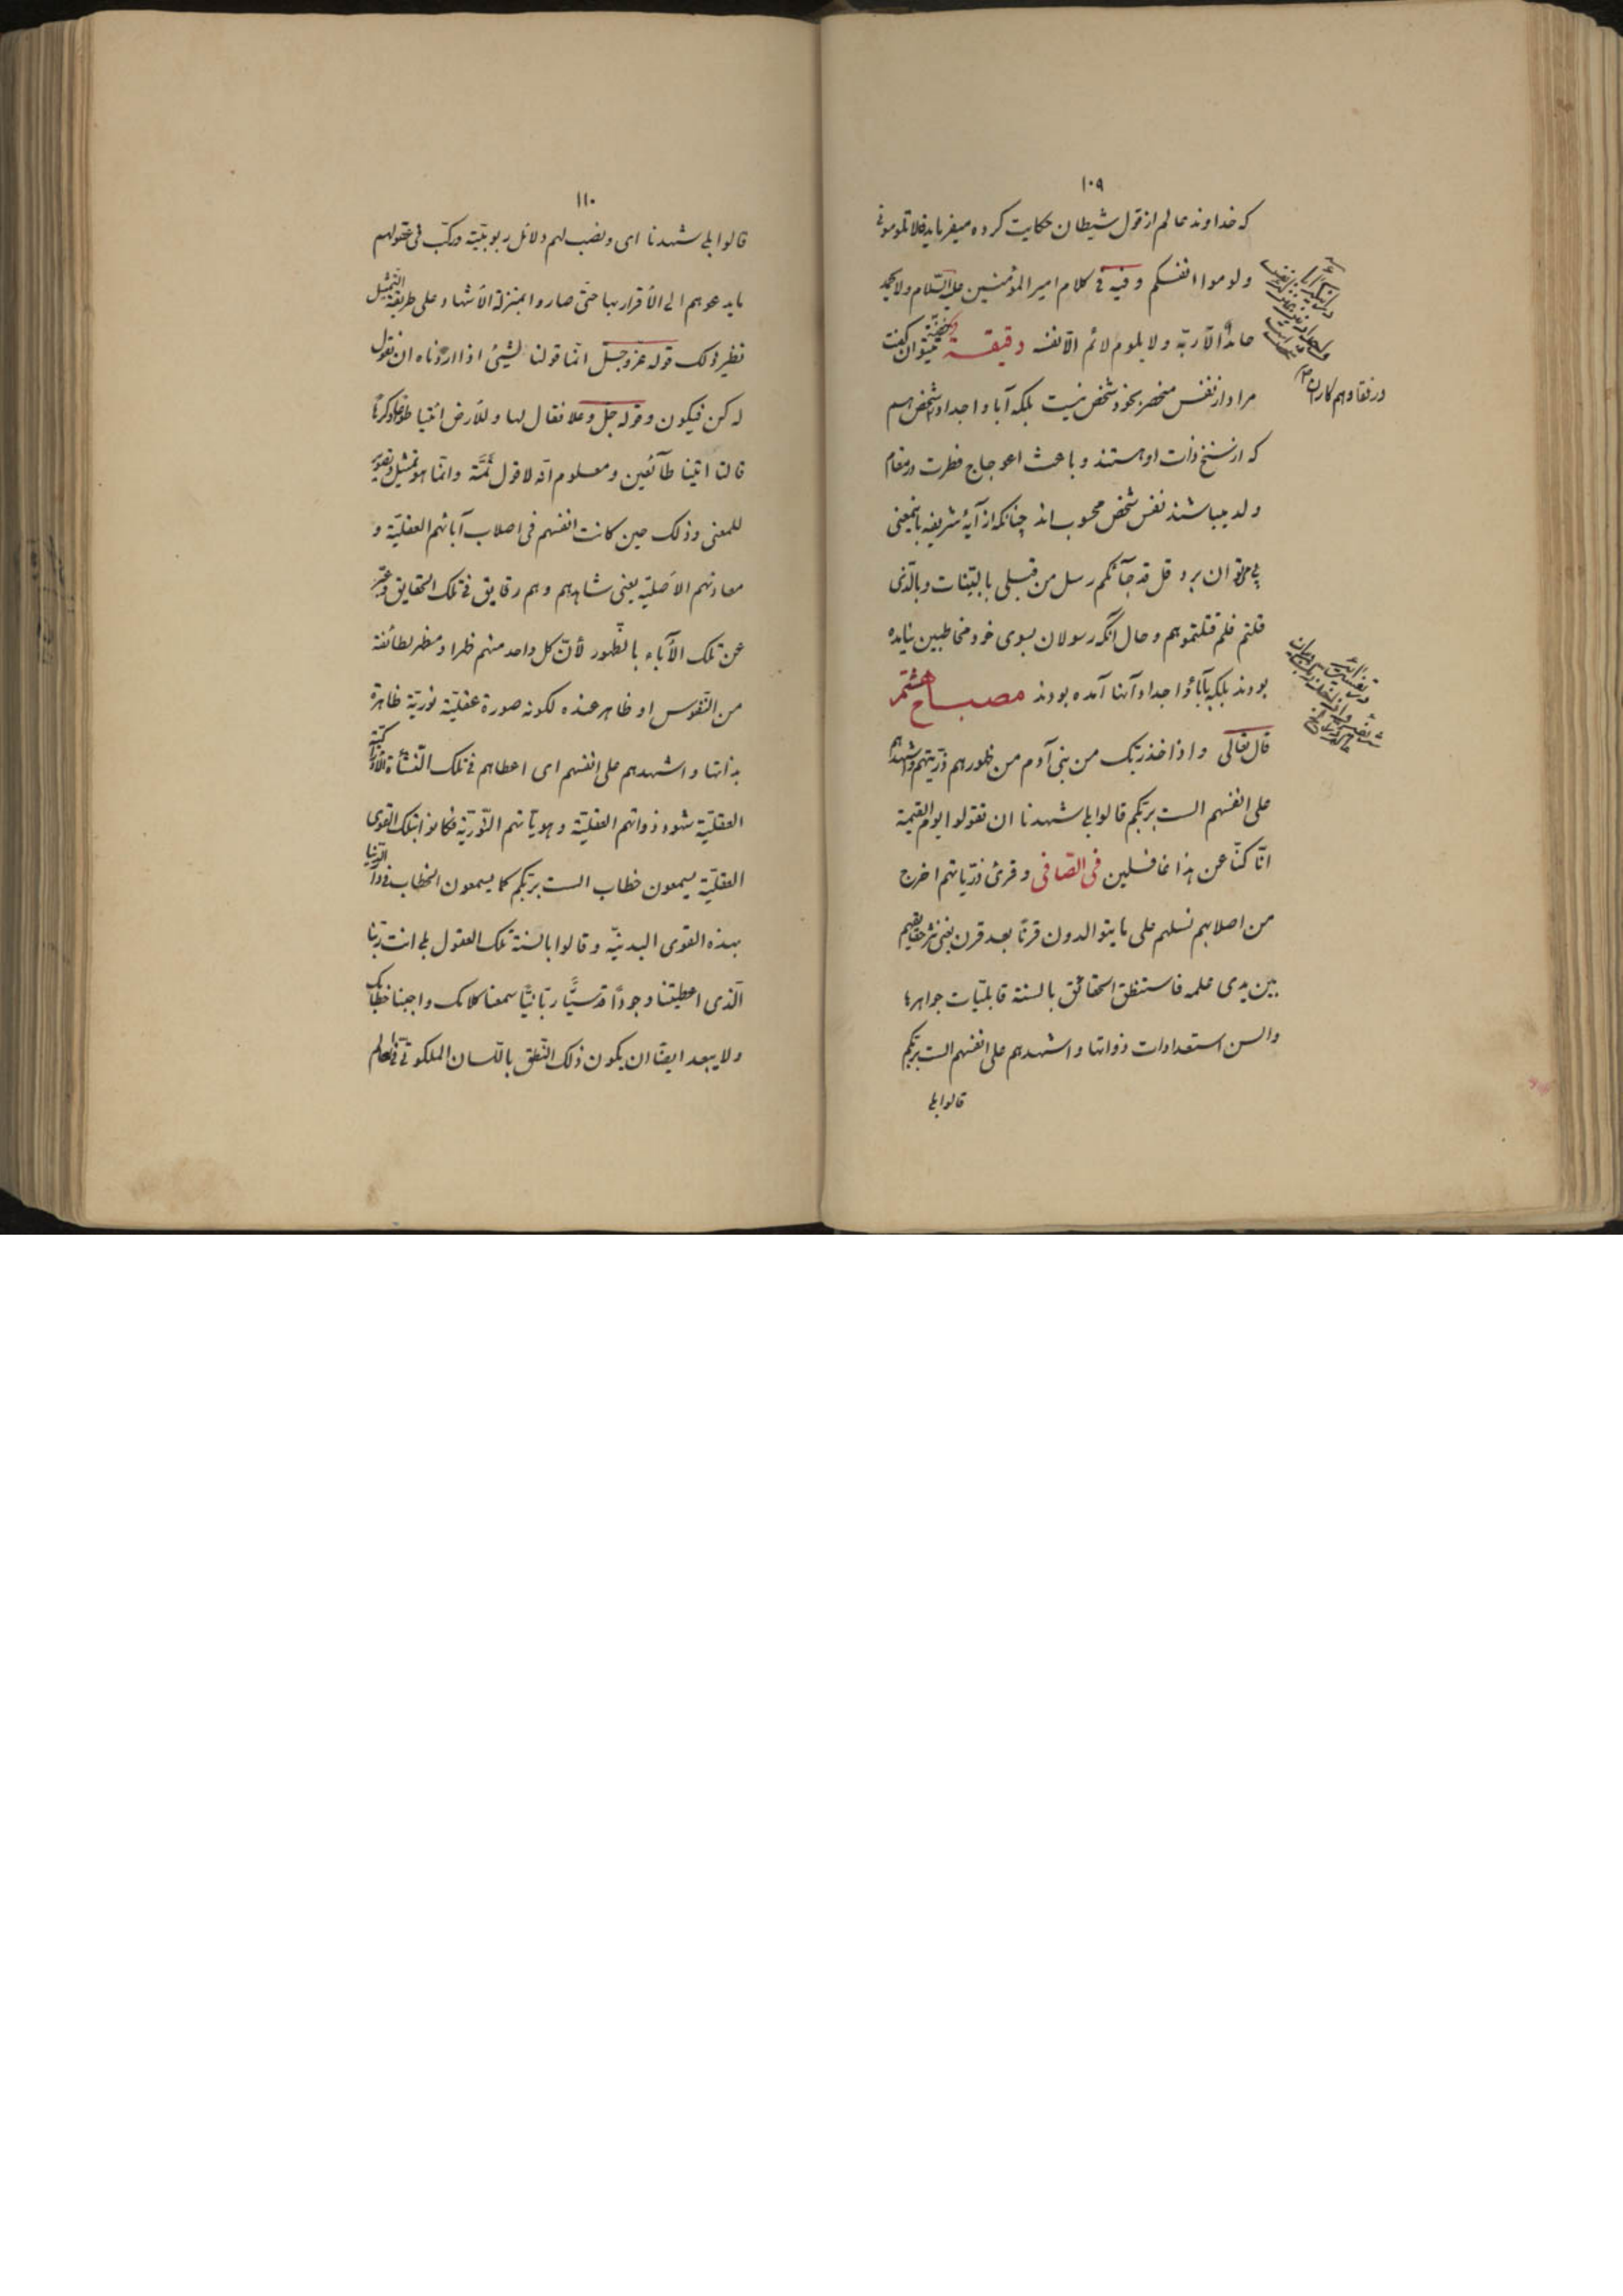 ١٠٩
که خداوند عالم از قول شیطان حکایت کرده میفرماید فلا تلومونی
ولوموا انفسکم وفیه فی کلام امیر المؤمنین علیه السّلام ولا یحمد
حامدٌ الّا ربّه ولا یلوم لائم الّا نفسه دقیقة میتوان گفت
مراد از نفس منحصر بخود شخص نیست بلکه آباء و اجداد شخص هم
که از سنخ ذات او هستند و باعث اعوجاج فطرت در مقام
ولد میباشند نفس شخص محسوب اند چنانکه از آیهٔ شریفه باینمعنی
پی میتوان برد قل قد جآئکم رسل من قبلی بالبیّنات وبالّذی
قلتم فلم قتلتموهم و حال آنکه رسولان بسوی خود مخاطبین نیامده
بودند بلکه بآباء و اجداد آنها آمده بودند مصباح هشتم
قال تعالی واذ اخذ ربّک من بنی آدم من ظهورهم ذرّیتهم واشهدهم
علی انفسهم الست بربّکم قالوا بلی شهدنا ان تقولوا یوم القیمة
انّا کنّا عن هذا غافلین فی الصّافی وقرئ ذرّیاتهم اخرج
من اصلابهم نسلهم علی ما یتوالدون قرناً بعد قرن یعنی نثر حقایقهم
بین یدی علمه فاستنطق الحقائق بالسنة قابلیّات جواهرها
والسن استعدادات ذواتها واشهدهم علی انفسهم الست بربّکم
قالوا بلی
در رفقا و همکاران
١١٠
قالوا بلی شهدنا ای ونصب لهم دلائل ربوبیّته ورکّب فی عقولهم
ما یدعوهم الی الأقرار بها حتّی صاروا بمنزلة الأشهاد علی طریقة التّمثیل
نظیر ذلک قوله عزّ وجلّ انّما قولنا لشیئ اذا اردناه ان نقول
له کن فیکون وقوله جلّ وعلا فقال لها وللأرض ائتیا طوعاً او کرهاً
قالتا اتینا طآئعین ومعلوم انّه لا قول ثمّة وانّما هو تمثیل وتصویر
للمعنی وذلک حین کانت انفسهم فی اصلاب آبائهم العقلیّة و
معادنهم الأصلیّة یعنی شاهدهم وهم رقایق فی تلک الحقایق وعبّر
عن تلک الآباء بالظّهور لأنّ کل واحد منهم ظهر او مظهر لطائفة
من النّفوس او ظاهر عنده لکونه صورة عقلیّة نوریّة ظاهرة
بذاتها واشهدهم علی انفسهم ای اعطاهم فی تلک النّشأة الأدراکیّة
العقلیّة شهود ذواتهم العقلیّة وهویّاتهم النّوریّة فکانوا بتلک القوی
العقلیّة یسمعون خطاب الست بربّکم کما یسمعون الخطاب فی دار الدّنیا
بهذه القوی البدنیّة وقالوا بالسنة تلک العقول بلی انت ربّنا
الّذی اعطیتنا وجوداً قدسیّاً ربّانیّاً سمعنا کلامک واجبنا خطابک
ولا یبعد ایضاً ان یکون ذلک النّطق باللّسان الملکوتی فی العالم